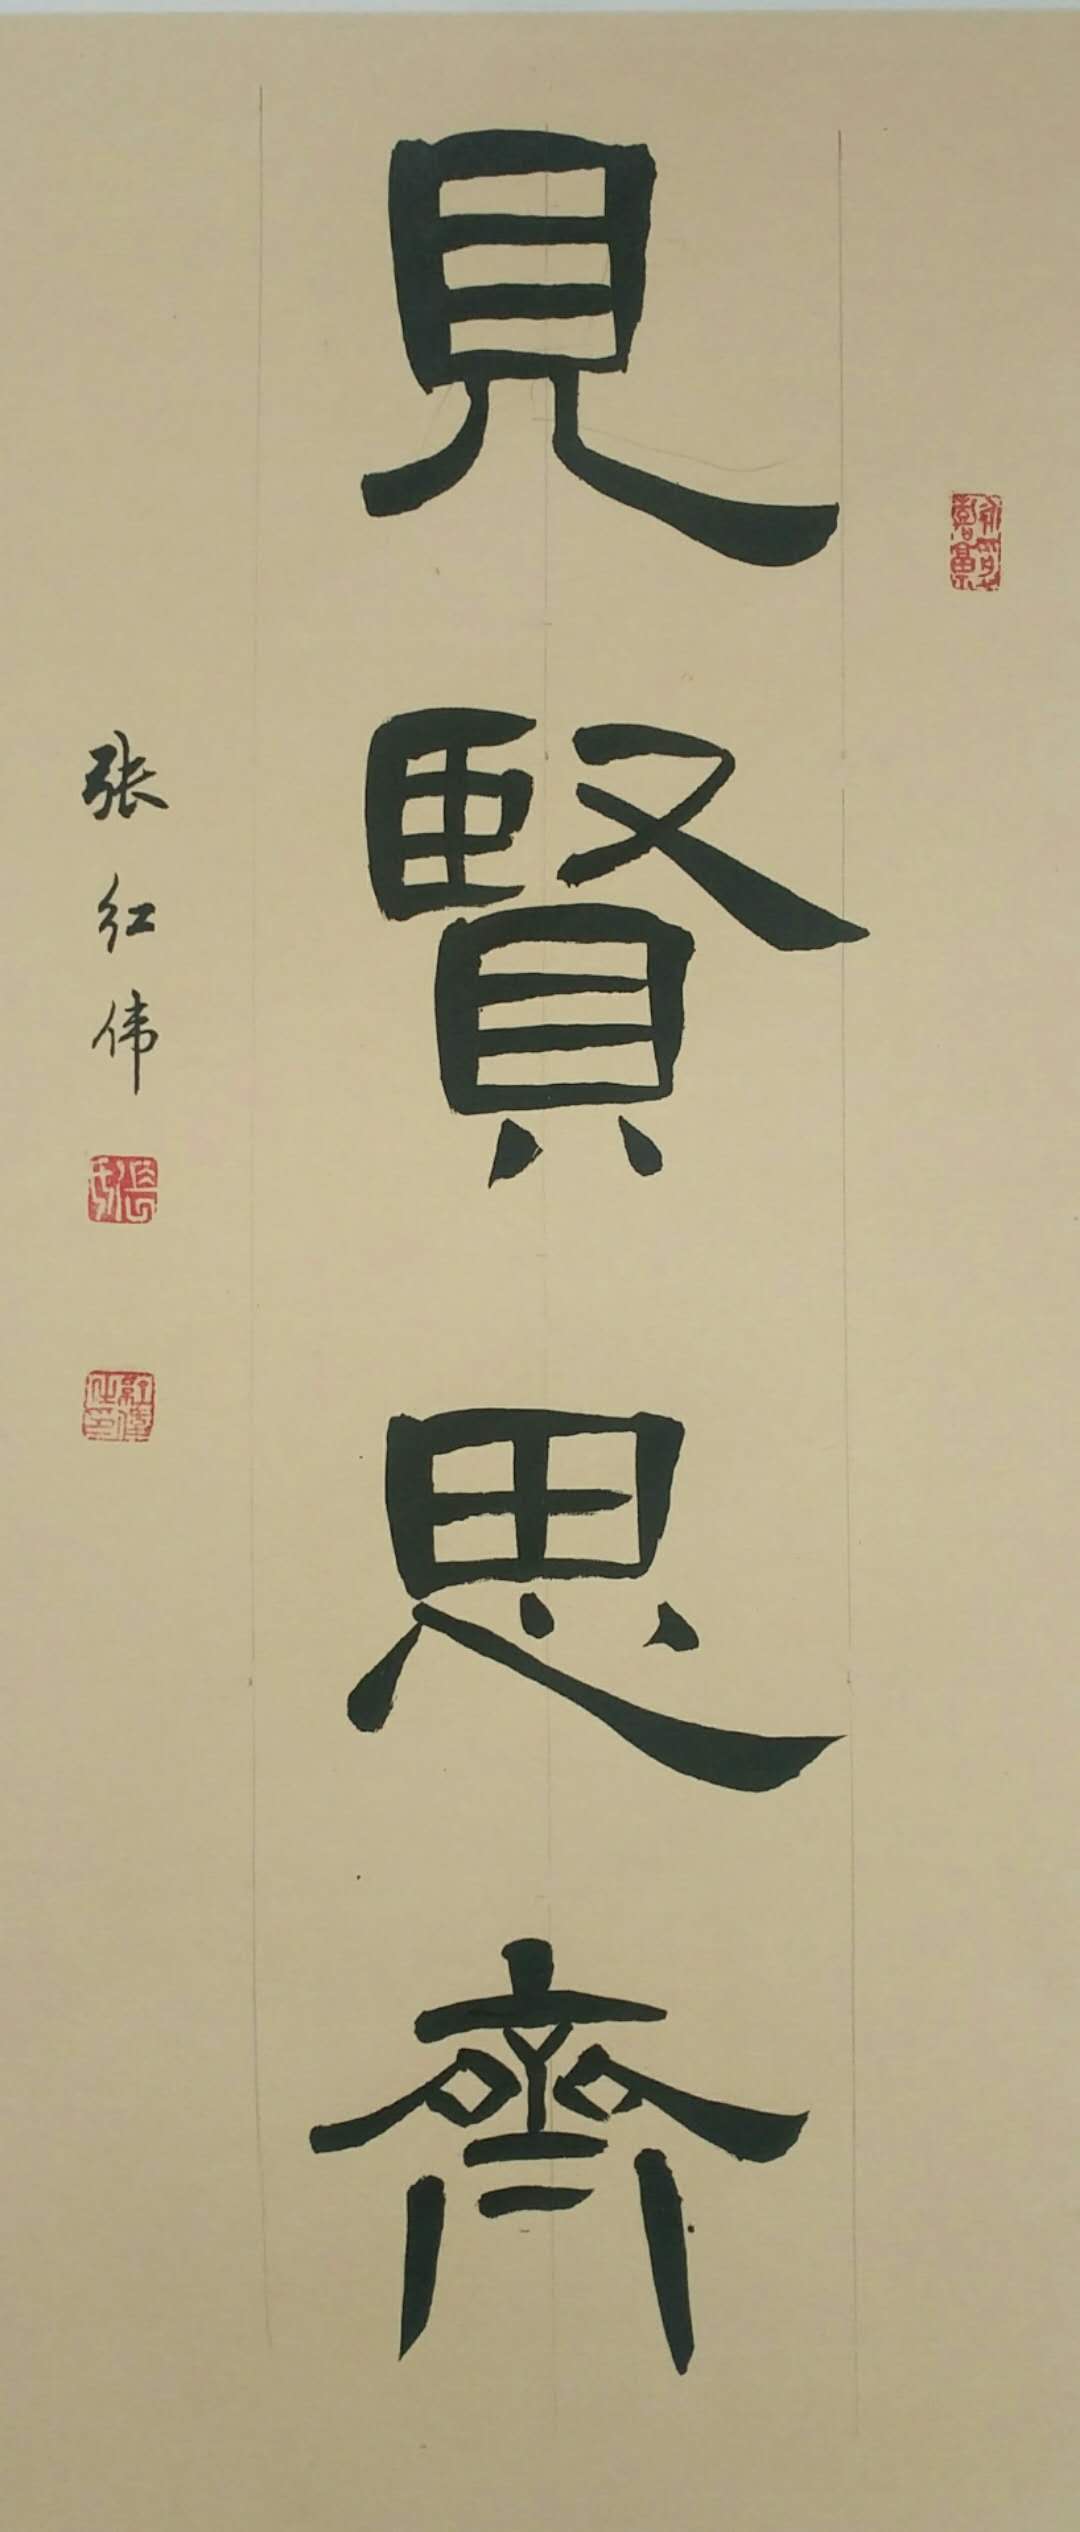 見賢思齊
张红伟